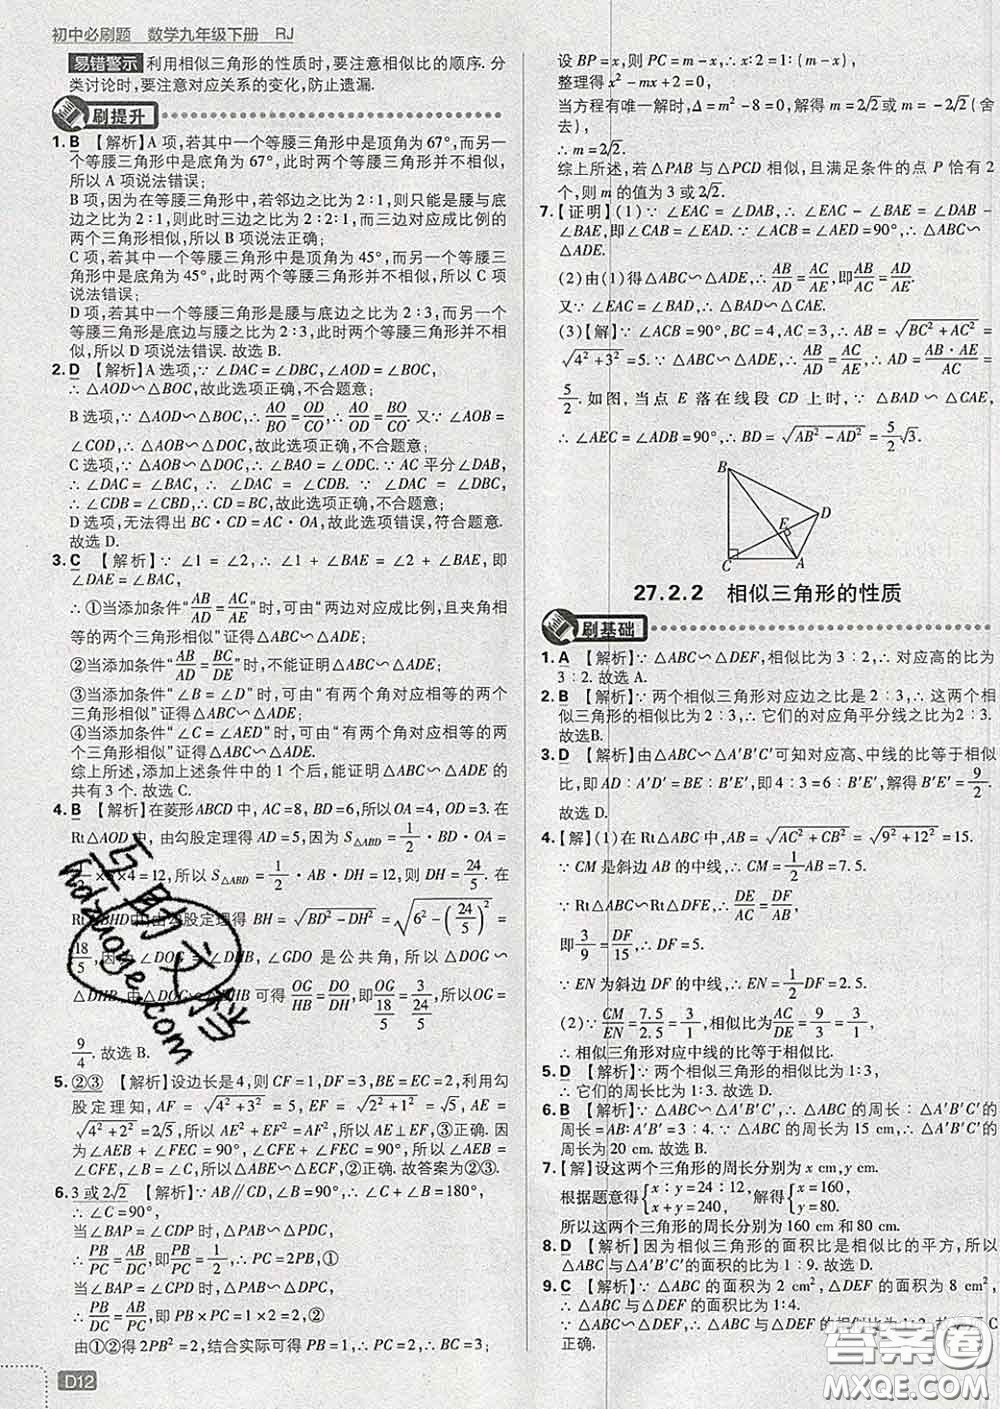 初中必刷题 数学九年级下册 RJ
易错警示 利用相似三角形的性质时,要注意相似比的顺序. 分
类讨论时,要注意对应关系的变化,防止遗漏.
刷提升
1. B 【解析】A 项,若其中一个等腰三角形中是顶角为 67°,而另一
个等腰三角形中是底角为 67°,此时两个等腰三角形并不相似,
所以 A 项说法错误;
B 项,因为在等腰三角形中,若邻边之比为 2∶1,则只能是腰与底
边之比为 2∶1,则此时三边之比为 2∶2∶1,而三边对应成比例的
两个三角形相似,所以 B 项说法正确;
C 项,若其中一个等腰三角形中是顶角为 45°,而另一个等腰三
角形中是底角为 45°,此时两个等腰三角形并不相似,所以 C 项
说法错误;
D 项,若其中一个等腰三角形是腰与底边之比为 2∶3,而另一个
等腰三角形是底边与腰之比为 2∶3,此时两个等腰三角形并不
相似,所以 D 项说法错误. 故选 B.
2. D 【解析】A 选项,∵ ∠DAC = ∠DBC,∠AOD = ∠BOC,
∴ △AOD∽△BOC,故此选项正确,不合题意;
B 选项,∵ △AOD∽△BOC,∴ AO/BO = OD/CO,∴ AO/OD = BO/CO. 又∵ ∠AOB =
∠COD,∴ △AOB∽△DOC,故此选项正确,不合题意;
C 选项,∵ △AOB∽△DOC,∴ ∠BAO = ∠ODC. ∵ AC 平分∠DAB,
∴ ∠DAC = ∠BAC,∴ ∠DAC = ∠CDB. ∵ ∠DAC = ∠DBC,
∴ ∠CDB = ∠CBD,∴ CD = BC,故此选项正确,不合题意;
D 选项,无法得出 BC·CD = AC·OA,故此选项错误,符合题意.
故选 D.
3. C 【解析】∵ ∠1 = ∠2,∴ ∠1 + ∠BAE = ∠2 + ∠BAE,即
∠DAE = ∠BAC,
∴ ①当添加条件“AB/AD = AC/AE”时,可由“两边对应成比例,且夹角相
等的两个三角形相似”证得△ABC∽△ADE;
②当添加条件“AB/AD = BC/DE”时,不能证得△ABC∽△ADE;
③当添加条件“∠B = ∠D”时,可由“有两个角对应相等的两个
三角形相似”证得△ABC∽△ADE;
④当添加条件“∠C = ∠AED”时,可由“有两个角对应相等的
两个三角形相似”证得△ABC∽△ADE.
综上所述,添加上述条件中的 1 个后,能证得△ABC∽△ADE的
共有 3 个. 故选 C.
4. B 【解析】在菱形 ABCD 中,AC=8,BD=6,所以 OA=4,OD=3. 在
Rt△AOD 中,由勾股定理得 AD=5,因为 S△ABD = 1/2·BD·OA =
×4=12,所以 S△ABD = 1/2·AB·DH=12,则 DH = 24/5. 在
Rt△BHD 中,由勾股定理得 BH = √(BD² − DH²) = √(6² − (24/5)²) =
18/5,因为∠DOG = ∠DHB,∠GDO 是公共角,所以△DOG∽
△DHB. 由△DOG∽△DHB 可得 OG/HB = DO/DH,即 OG/(18/5) = 3/(24/5),所以 OG =
9/4. 故选 B.
5. ②③ 【解析】设边长是 4,则 CF = 1,DF = 3,BE = EC = 2,利用勾
股定理知,AF = √(4² + 3²) = 5,EF = √(2² + 1²) = √5,AE =
√(4² + 2²) = 2√5,所以 AE² + EF² = AF²,所以 AE⊥EF,③正确. 因为
∠AEB + ∠FEC = 90°,∠CFE + ∠FEC = 90°,所以∠AEB =
∠CFE,∠B = ∠C,所以△ABE∽△ECF,②正确. 故答案为②③.
6. 3 或 2√2 【解析】∵ AB∥CD,∠B = 90°,∴ ∠C + ∠B = 180°,
∴ ∠C = 90°,
当∠BAP = ∠CDP 时,△PAB∽△PDC,
∴ PB/PC = AB/DC,即 PB/PC = 1/2,∴ PC = 2PB,①
当∠BAP = ∠CPD 时,△PAB∽△DPC,
∴ AB/PC = PB/DC,即 PB×PC = 1×2 = 2,②
由①②得 2PB² = 2,结合实际可得 PB = 1,∴ PC = 2,∴ BC = 3;
D12
设 BP = x,则 PC = m − x,∴ x∶2 = 1∶(m − x),
整理得 x² − mx + 2 = 0;
当方程有唯一解时,Δ = m² − 8 = 0,解得 m = 2√2或 m = −2√2(舍
去),
∴ m = 2√2.
综上所述,若△PAB 与△PCD 相似,且满足条件的点 P 恰有 2
个,则 m 的值为 3 或 2√2.
7. 【证明】(1)∵ ∠EAC = ∠DAB,∴ ∠EAC − ∠BAE = ∠DAB −
∠BAE,即∠CAB = ∠EAD. ∵ ∠ACB = ∠AED = 90°,∴ △ABC∽
△ADE.
(2)由(1)得△ABC∽△ADE,∴ AB/AD = AC/AE,即 AB/AC = AD/AE.
又∵ ∠EAC = ∠BAD,∴ △BAD∽△CAE.
(3)【解】∵ ∠ACB = 90°,BC = 4,AC = 3,∴ AB = √(BC² + AC²) =
√(4² + 3²) = 5. ∵ △ABC∽△ADE,∴ AB/AD = AC/AE,∴ AD = AB·AE/AC =
5/2. 如图,当点 E 落在线段 CD 上时,∵ △BAD∽△CAE,
∴ ∠AEC = ∠ADB = 90°,∴ BD = √(AB² − AD²) = 5/2√3.
B
D
E
C
A
27.2.2 相似三角形的性质
刷基础
1. A 【解析】∵ △ABC∽△DEF,相似比为 3∶2,∴ 对应高的比为
3∶2. 故选 A.
2. B 【解析】∵ 两个相似三角形对应边之比是 2∶3,∴ 这两个相
似三角形的相似比为 2∶3,∴ 它们的对应角平分线之比为2∶3.
故选B.
3. D 【解析】由△ABC∽△A′B′C′可知对应高、中线的比等于相似
比,即 AD∶A′D′ = BE∶B′E′,即 4∶3 = 6∶B′E′,解得 B′E′ = 9/2.
故选 D.
4. 【解】(1)在 Rt△ABC 中,AB = √(AC² + CB²) = √(9² + 12²) = 15.
∵ CM 是斜边 AB 的中线,∴ CM = 1/2AB = 7.5.
∵ Rt△ABC∽Rt△DFE,∴ DE/AC = DF/AB,
即 3/9 = DF/15,∴ DF = 5.
∵ EN 为斜边 DF 的中线,∴ EN = 1/2DF = 2.5.
(2)∵ CM/EN = 7.5/2.5 = 3/1,相似比为 AC/DE = 9/3 = 3/1,
∴ 相似三角形对应中线的比等于相似比.
5. D 【解析】∵ 两个相似三角形的相似比为 1∶3,
∴ 它们的周长比为 1∶3. 故选 D.
6. B 【解析】∵ △ABC∽△A′B′C′,∴ △ABC 的周长∶△A′B′C′的
周长 = AB∶A′B′ = 3∶4. ∵ △ABC 的周长为 15 cm,∴ △A′B′C′
的周长为 20 cm. 故选 B.
7. 【解】设这两个三角形的周长分别为 x cm,y cm.
根据题意得{x∶y = 24∶12, x + y = 240, 解得{x = 160, y = 80,
所以这两个三角形的周长分别为 160 cm 和 80 cm.
8. D 【解析】因为相似三角形的面积比是相似比的平方,所以
△ABC 与△A′B′C′的面积的比为 1∶9. 故选 D.
9. C 【解析】∵ △ABC 的面积为 2 cm²,△DEF 的面积为 8 cm²,
∴ △ABC 与△DEF 的面积比为 1∶4.
∵ △ABC∽△DEF,∴ △ABC 与△DEF 的相似比为 1∶2,
正确.
hdzuoye.com
答案圈
MXQE.COM